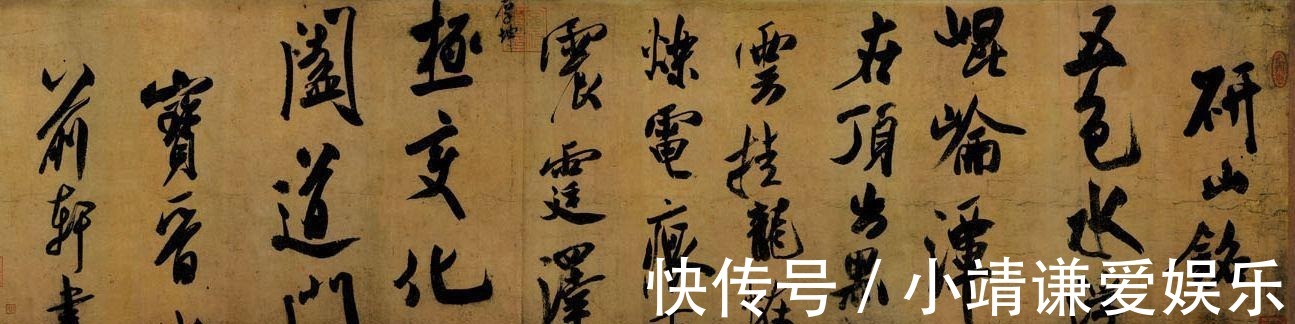 研山銘
五色水
崐崘潭
在頂出黑
雲挂龍
爍電痕
震霆澤
厚坤
極變化
闔道門
寶晉
前軒書
快传号 / 小靖谦爱娱乐